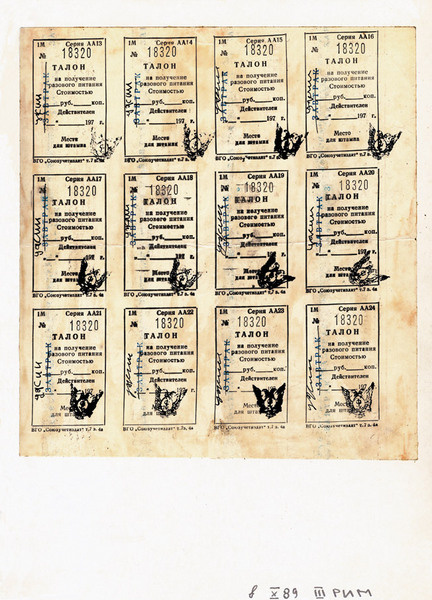 1М Серия АА13
№ 18320
ТАЛОН
на получение
разового питания
Стоимостью
руб. коп.
Действителен
197 г.
ЗАВТРАК
Место
для штампа
ВГО „Союзучетиздат“ т.7 л. 4а
1М Серия АА14
№ 18320
ТАЛОН
на получение
разового питания
Стоимостью
руб. коп.
Действителен
197 г.
ЗАВТРАК
Место
для штампа
ВГО „Союзучетиздат“ т.7 л. 4а
1М Серия АА15
№ 18320
ТАЛОН
на получение
разового питания
Стоимостью
руб. коп.
Действителен
197 г.
ЗАВТРАК
Место
для штампа
ВГО „Союзучетиздат“ т.7 л. 4а
1М Серия АА16
№ 18320
ТАЛОН
на получение
разового питания
Стоимостью
руб. коп.
Действителен
197 г.
ЗАВТРАК
Место
для штампа
ВГО „Союзучетиздат“ т.7 л. 4а
1М Серия АА17
№ 18320
ТАЛОН
на получение
разового питания
Стоимостью
руб. коп.
Действителен
197 г.
ЗАВТРАК
Место
для штампа
ВГО „Союзучетиздат“ т.7 л. 4а
1М Серия АА18
№ 18320
ТАЛОН
на получение
разового питания
Стоимостью
руб. коп.
Действителен
197 г.
ЗАВТРАК
Место
для штампа
ВГО „Союзучетиздат“ т.7 л. 4а
1М Серия АА19
№ 18320
ТАЛОН
на получение
разового питания
Стоимостью
руб. коп.
Действителен
197 г.
ЗАВТРАК
Место
для штампа
ВГО „Союзучетиздат“ т.7 л. 4а
1М Серия АА20
№ 18320
ТАЛОН
на получение
разового питания
Стоимостью
руб. коп.
Действителен
197 г.
ЗАВТРАК
Место
для штампа
ВГО „Союзучетиздат“ т.7 л. 4а
1М Серия АА21
№ 18320
ТАЛОН
на получение
разового питания
Стоимостью
руб. коп.
Действителен
197 г.
ЗАВТРАК
Место
для штампа
ВГО „Союзучетиздат“ т.7 л. 4а
1М Серия АА22
№ 18320
ТАЛОН
на получение
разового питания
Стоимостью
руб. коп.
Действителен
197 г.
ЗАВТРАК
Место
для штампа
ВГО „Союзучетиздат“ т.7 л. 4а
1М Серия АА23
№ 18320
ТАЛОН
на получение
разового питания
Стоимостью
руб. коп.
Действителен
197 г.
ЗАВТРАК
Место
для штампа
ВГО „Союзучетиздат“ т.7 л. 4а
1М Серия АА24
№ 18320
ТАЛОН
на получение
разового питания
Стоимостью
руб. коп.
Действителен
197 г.
ЗАВТРАК
Место
для штампа
ВГО „Союзучетиздат“ т.7 л. 4а
8 X 89 III РИМ